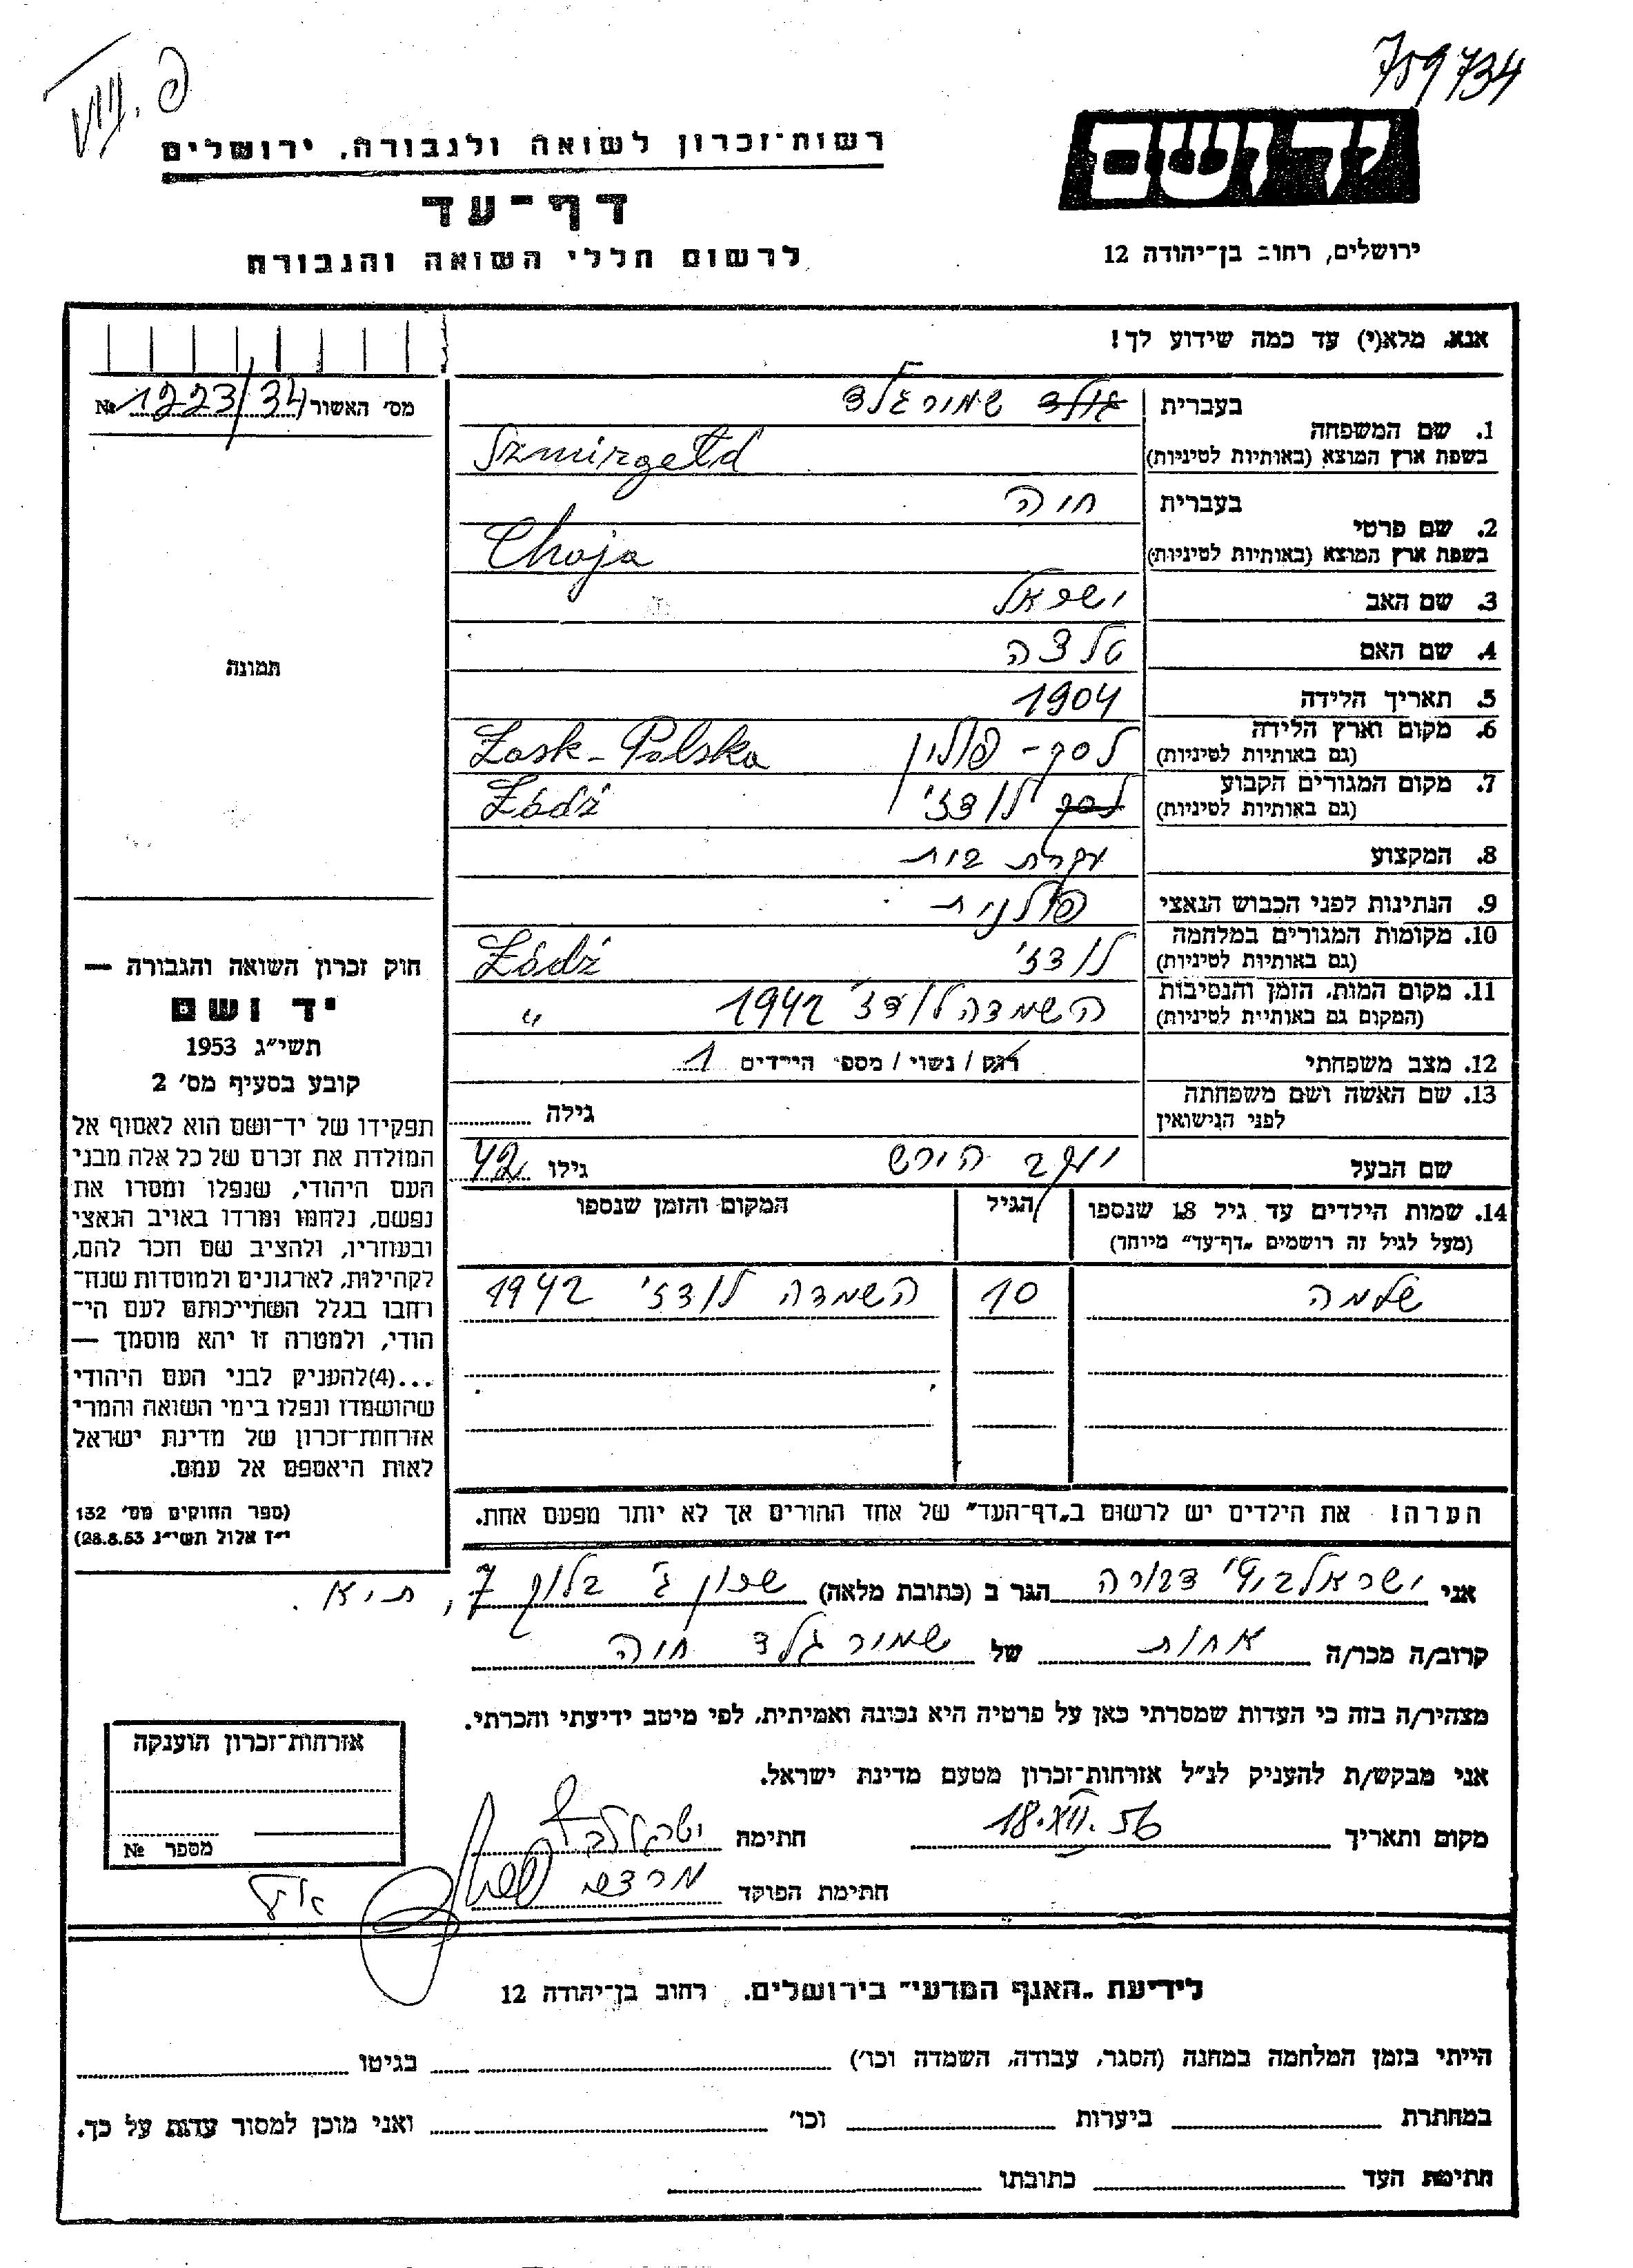 759734
פ. VIII
יד ושם
רשות־זכרון לשואה ולגבורה, ירושלים
דף־עד
לרשום חללי השואה והגבורה
ירושלים, רחוב בן־יהודה 12
אנא, מלא(י) עד כמה שידוע לך!
מס׳ האשור 1223/34 №
תמונה
1. שם המשפחה
בעברית שמירגלד
בשפת ארץ המוצא (באותיות לטיניות) Szmirgeld
2. שם פרטי
בעברית חוה
בשפת ארץ המוצא (באותיות לטיניות) Chaja
3. שם האב ישראל
4. שם האם טלצה
5. תאריך הלידה 1904
6. מקום וארץ הלידה לסק - פולין Łask - Polska
(גם באותיות לטיניות)
7. מקום המגורים הקבוע לסק לודז׳ Łódź
(גם באותיות לטיניות)
8. המקצוע עקרת בית
9. הנתינות לפני הכבוש הנאצי פולנית
10. מקומות המגורים במלחמה לודז׳ Łódź
(גם באותיות לטיניות)
11. מקום המות, הזמן והנסיבות השמדה לודז׳ 1942 "
(המקום גם באותיות לטיניות)
12. מצב משפחתי רוק / נשוי / מספר הילדים 1
13. שם האשה ושם משפחתה
לפני הנישואין
גילה
שם הבעל יעקב הירש גילו 42
14. שמות הילדים עד גיל 18 שנספו הגיל המקום והזמן שנספו
(מעל לגיל זה רושמים „דף־עד” מיוחד)
שלמה 10 השמדה לודז׳ 1942
הערה! את הילדים יש לרשום ב„דף־העד” של אחד ההורים אך לא יותר מפעם אחת.
חוק זכרון השואה והגבורה —
יד ושם
תשי״ג 1953
קובע בסעיף מס׳ 2
תפקידו של יד־ושם הוא לאסוף אל
המולדת את זכרם של כל אלה מבני
העם היהודי, שנפלו ומסרו את
נפשם, נלחמו ומרדו באויב הנאצי
ובעוזריו, ולהציב שם וזכר להם,
לקהילות, לארגונים ולמוסדות שנח־
רבו בגלל השתייכותם לעם הי־
הודי, ולמטרה זו יהא מוסמך —
...(4) להעניק לבני העם היהודי
שהושמדו ונפלו בימי השואה והמרי
אזרחות־זכרון של מדינת ישראל
לאות היאספם אל עמם.
(ספר החוקים מס׳ 132
י״ז אלול תשי״ג 28.8.53)
אני ישראלביץ׳ דבורה הגר ב (כתובת מלאה) שרון ג׳ בלוק 7, ת״א.
קרוב/ה מכר/ה אחות של שמירגלד חוה
מצהיר/ה בזה כי העדות שמסרתי כאן על פרטיה היא נכונה ואמיתית, לפי מיטב ידיעתי והכרתי.
אני מבקש/ת להעניק לנ״ל אזרחות־זכרון מטעם מדינת ישראל.
מקום ותאריך 18.XII.56 חתימה
חתימת הפוקד
אזרחות־זכרון הוענקה
מספר №
לידיעת „האגף המדעי” בירושלים, רחוב בן־יהודה 12
הייתי בזמן המלחמה במחנה (הסגר, עבודה, השמדה וכו׳) בגיטו
במחתרת ביערות וכו׳ ואני מוכן למסור עדות על כך.
חתימת העד כתובתו